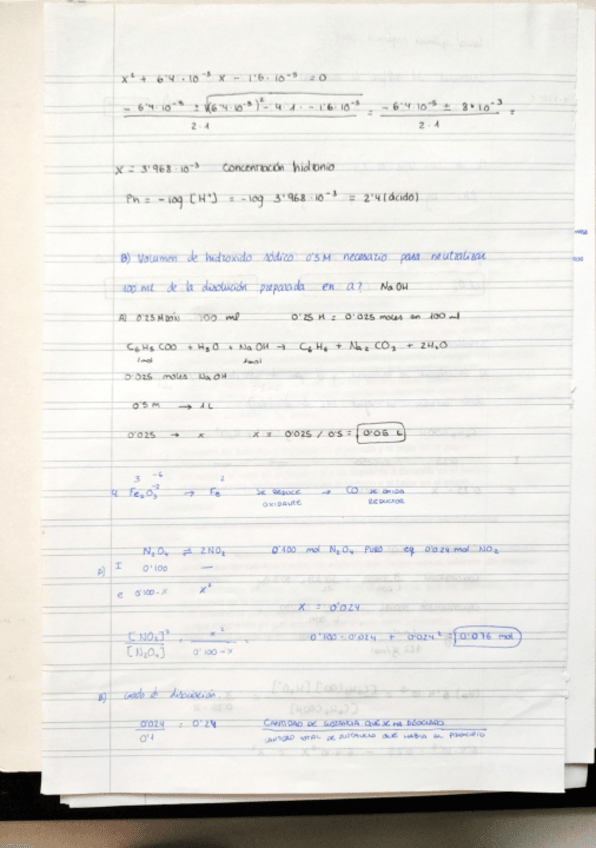 x² + 6'4 · 10⁻⁵ x - 1'6 · 10⁻⁵ = 0
- 6'4 · 10⁻⁵ ± √(6'4·10⁻⁵)² - 4·1· - 1'6·10⁻⁵ = - 6'4·10⁻⁵ ± 8·10⁻³ =
2·1 2·1
x = 3'968 · 10⁻³ Concentración hidronio
PH = -log [H⁺] = -log 3'968 · 10⁻³ = 2'4 (ácido)
B) Volumen de hidroxido sódico 0'5 M necesario para neutralizar
100 ml de la disolución preparada en a? NaOH
A) 0'25 M 100 ml 0'25 M = 0'025 moles en 100 ml
C₆H₅COO + H₃O + NaOH → C₆H₆ + Na₂CO₃ + 2H₂O
1mol 1mol
0'025 moles NaOH
0'5 M → 1L
0'025 → x x = 0'025 / 0'5 = 0'05 L
3 -6 2
4 Fe₂O₃ → Fe SE REDUCE → CO SE OXIDA
OXIDANTE REDUCTOR
N₂O₄ ⇌ 2NO₂ 0'100 mol N₂O₄ PURO eq 0'024 mol NO₂
A) I 0'100 —
e 0'100-x x²
x = 0'024
[NO₂]² = x² 0'100-0'024 + 0'024² = 0.076 mol
[N₂O₄] 0'100-x
B) Grado de disociación.
0'024 = 0'24 CANTIDAD DE SUSTANCIA QUE SE HA DISOCIADO
0'1 CANTIDAD TOTAL DE SUSTANCIA QUE HABIA AL PRINCIPIO